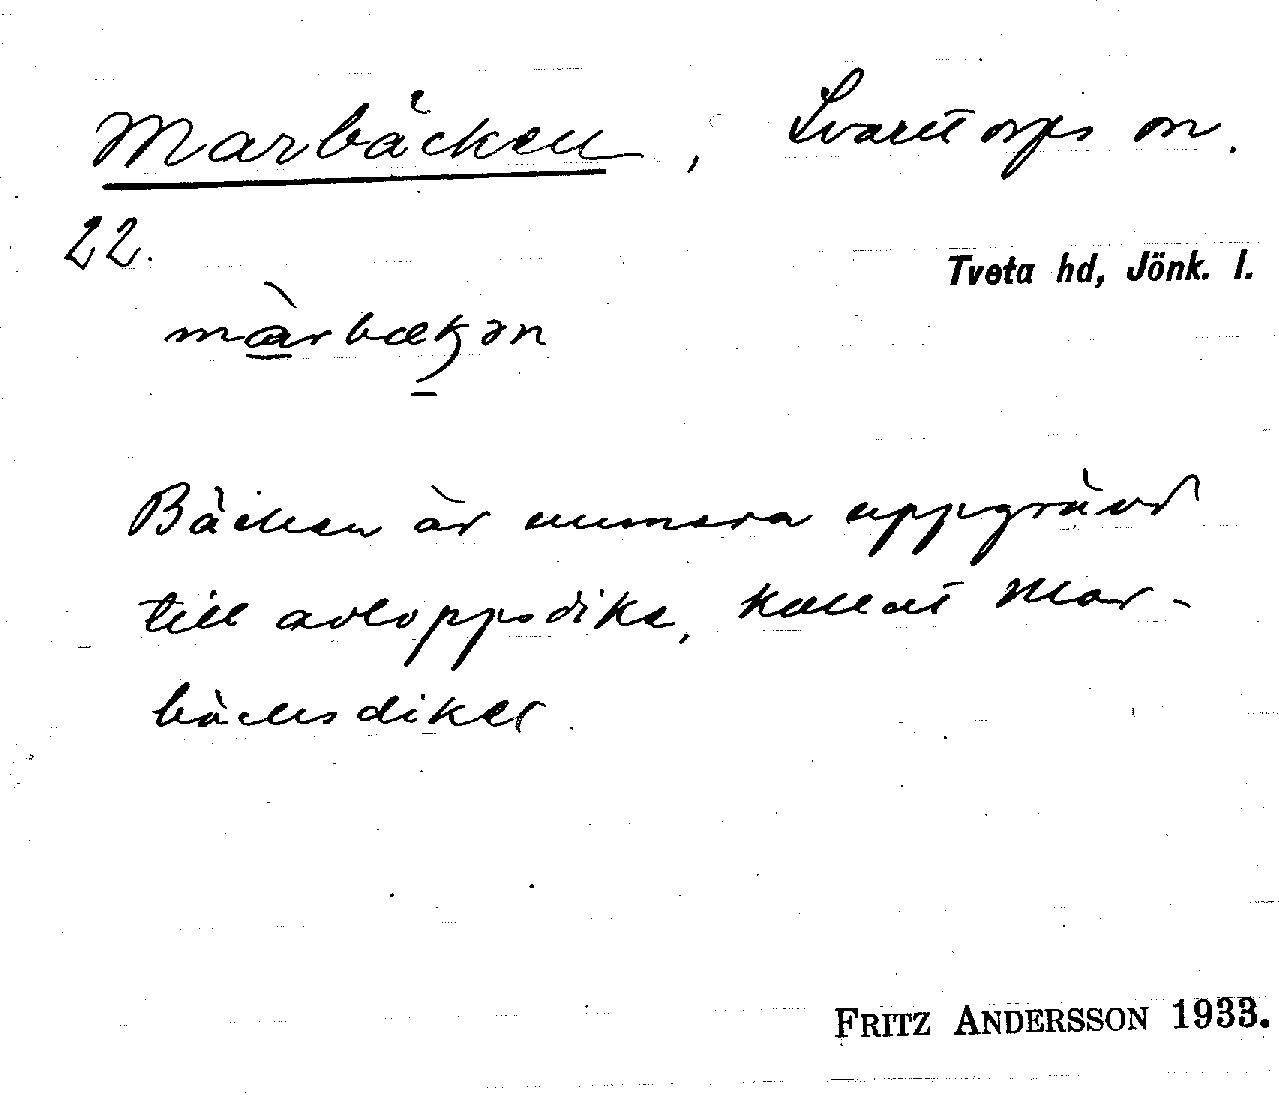 Marbäcken, Svarttorps sn.
22.
Tveta hd, Jönk. l.
màrbækən
Bäcken är numera uppgrävd
till avloppsdike, kallat Mar-
bäcksdiket.
FRITZ ANDERSSON 1933.